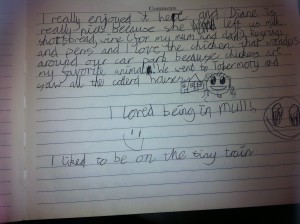 Comments
I really enjoyed it here and Diane is
really nice because she left us milk
shortbread, wine (for my mum and dad),
and pens and I love the chicken that wonders
around our car park because chickens are
my favorite animal! We went to Tobermory and
saw all the colerd houses
I loved being in mull,
I liked to be on the tiny train